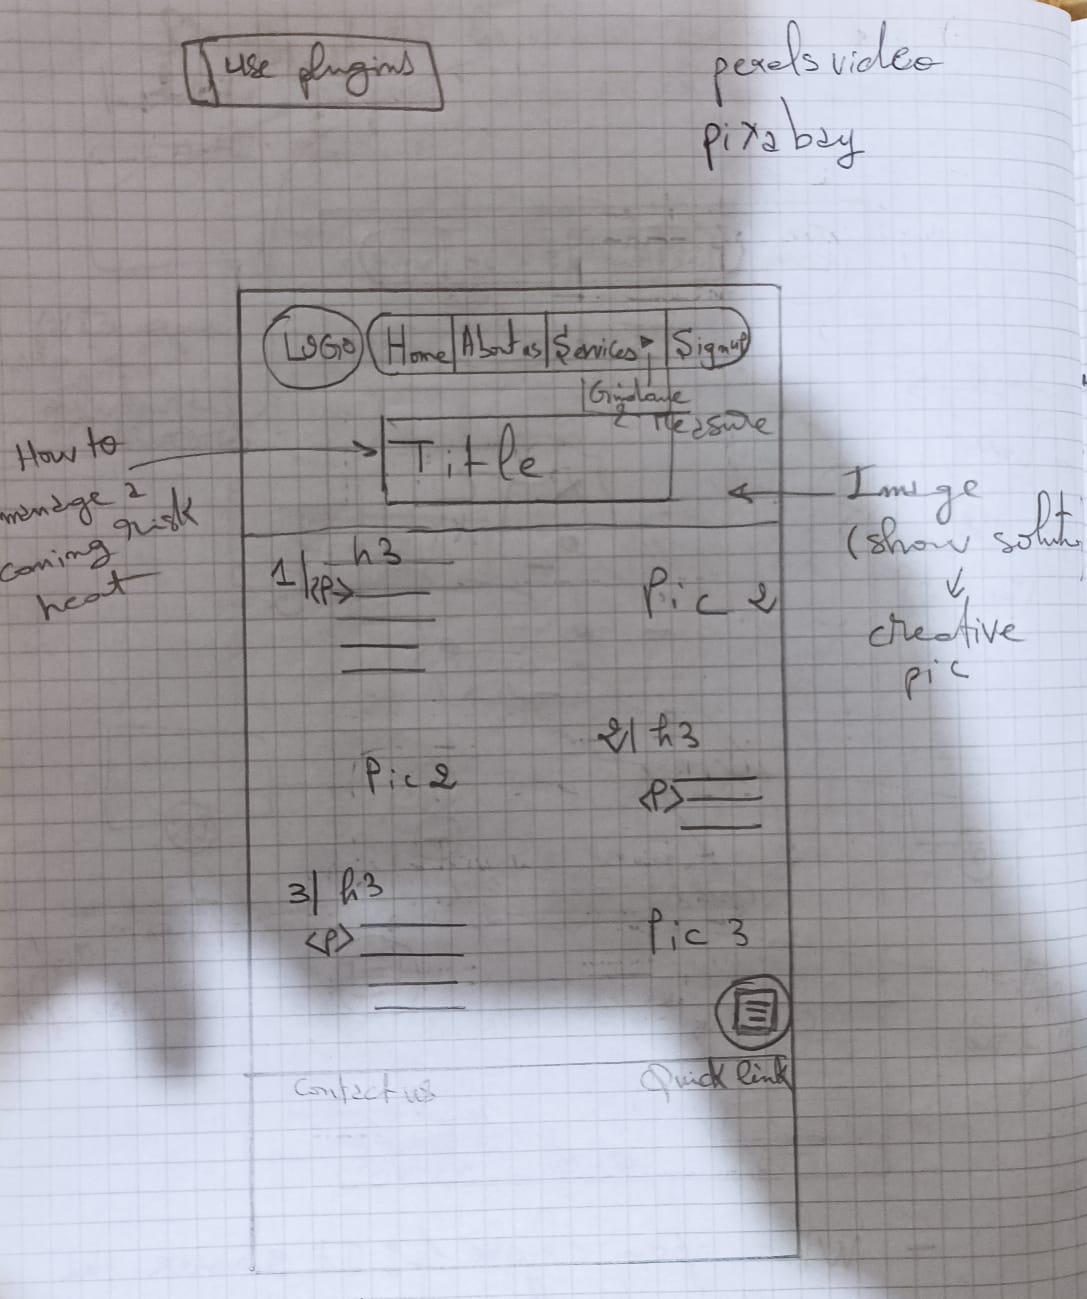 use plugins
pexels video
pixabay
LOGO
Home
About us
Services
Signup
Guidance
& measure
Title
How to
manage a
coming risk
heat
Image
(show soluti
creative
pic
1/ h3
<p>
Pic 2
2/ h3
<p>
Pic 2
3/ h3
<p>
Pic 3
Contact us
Quick link